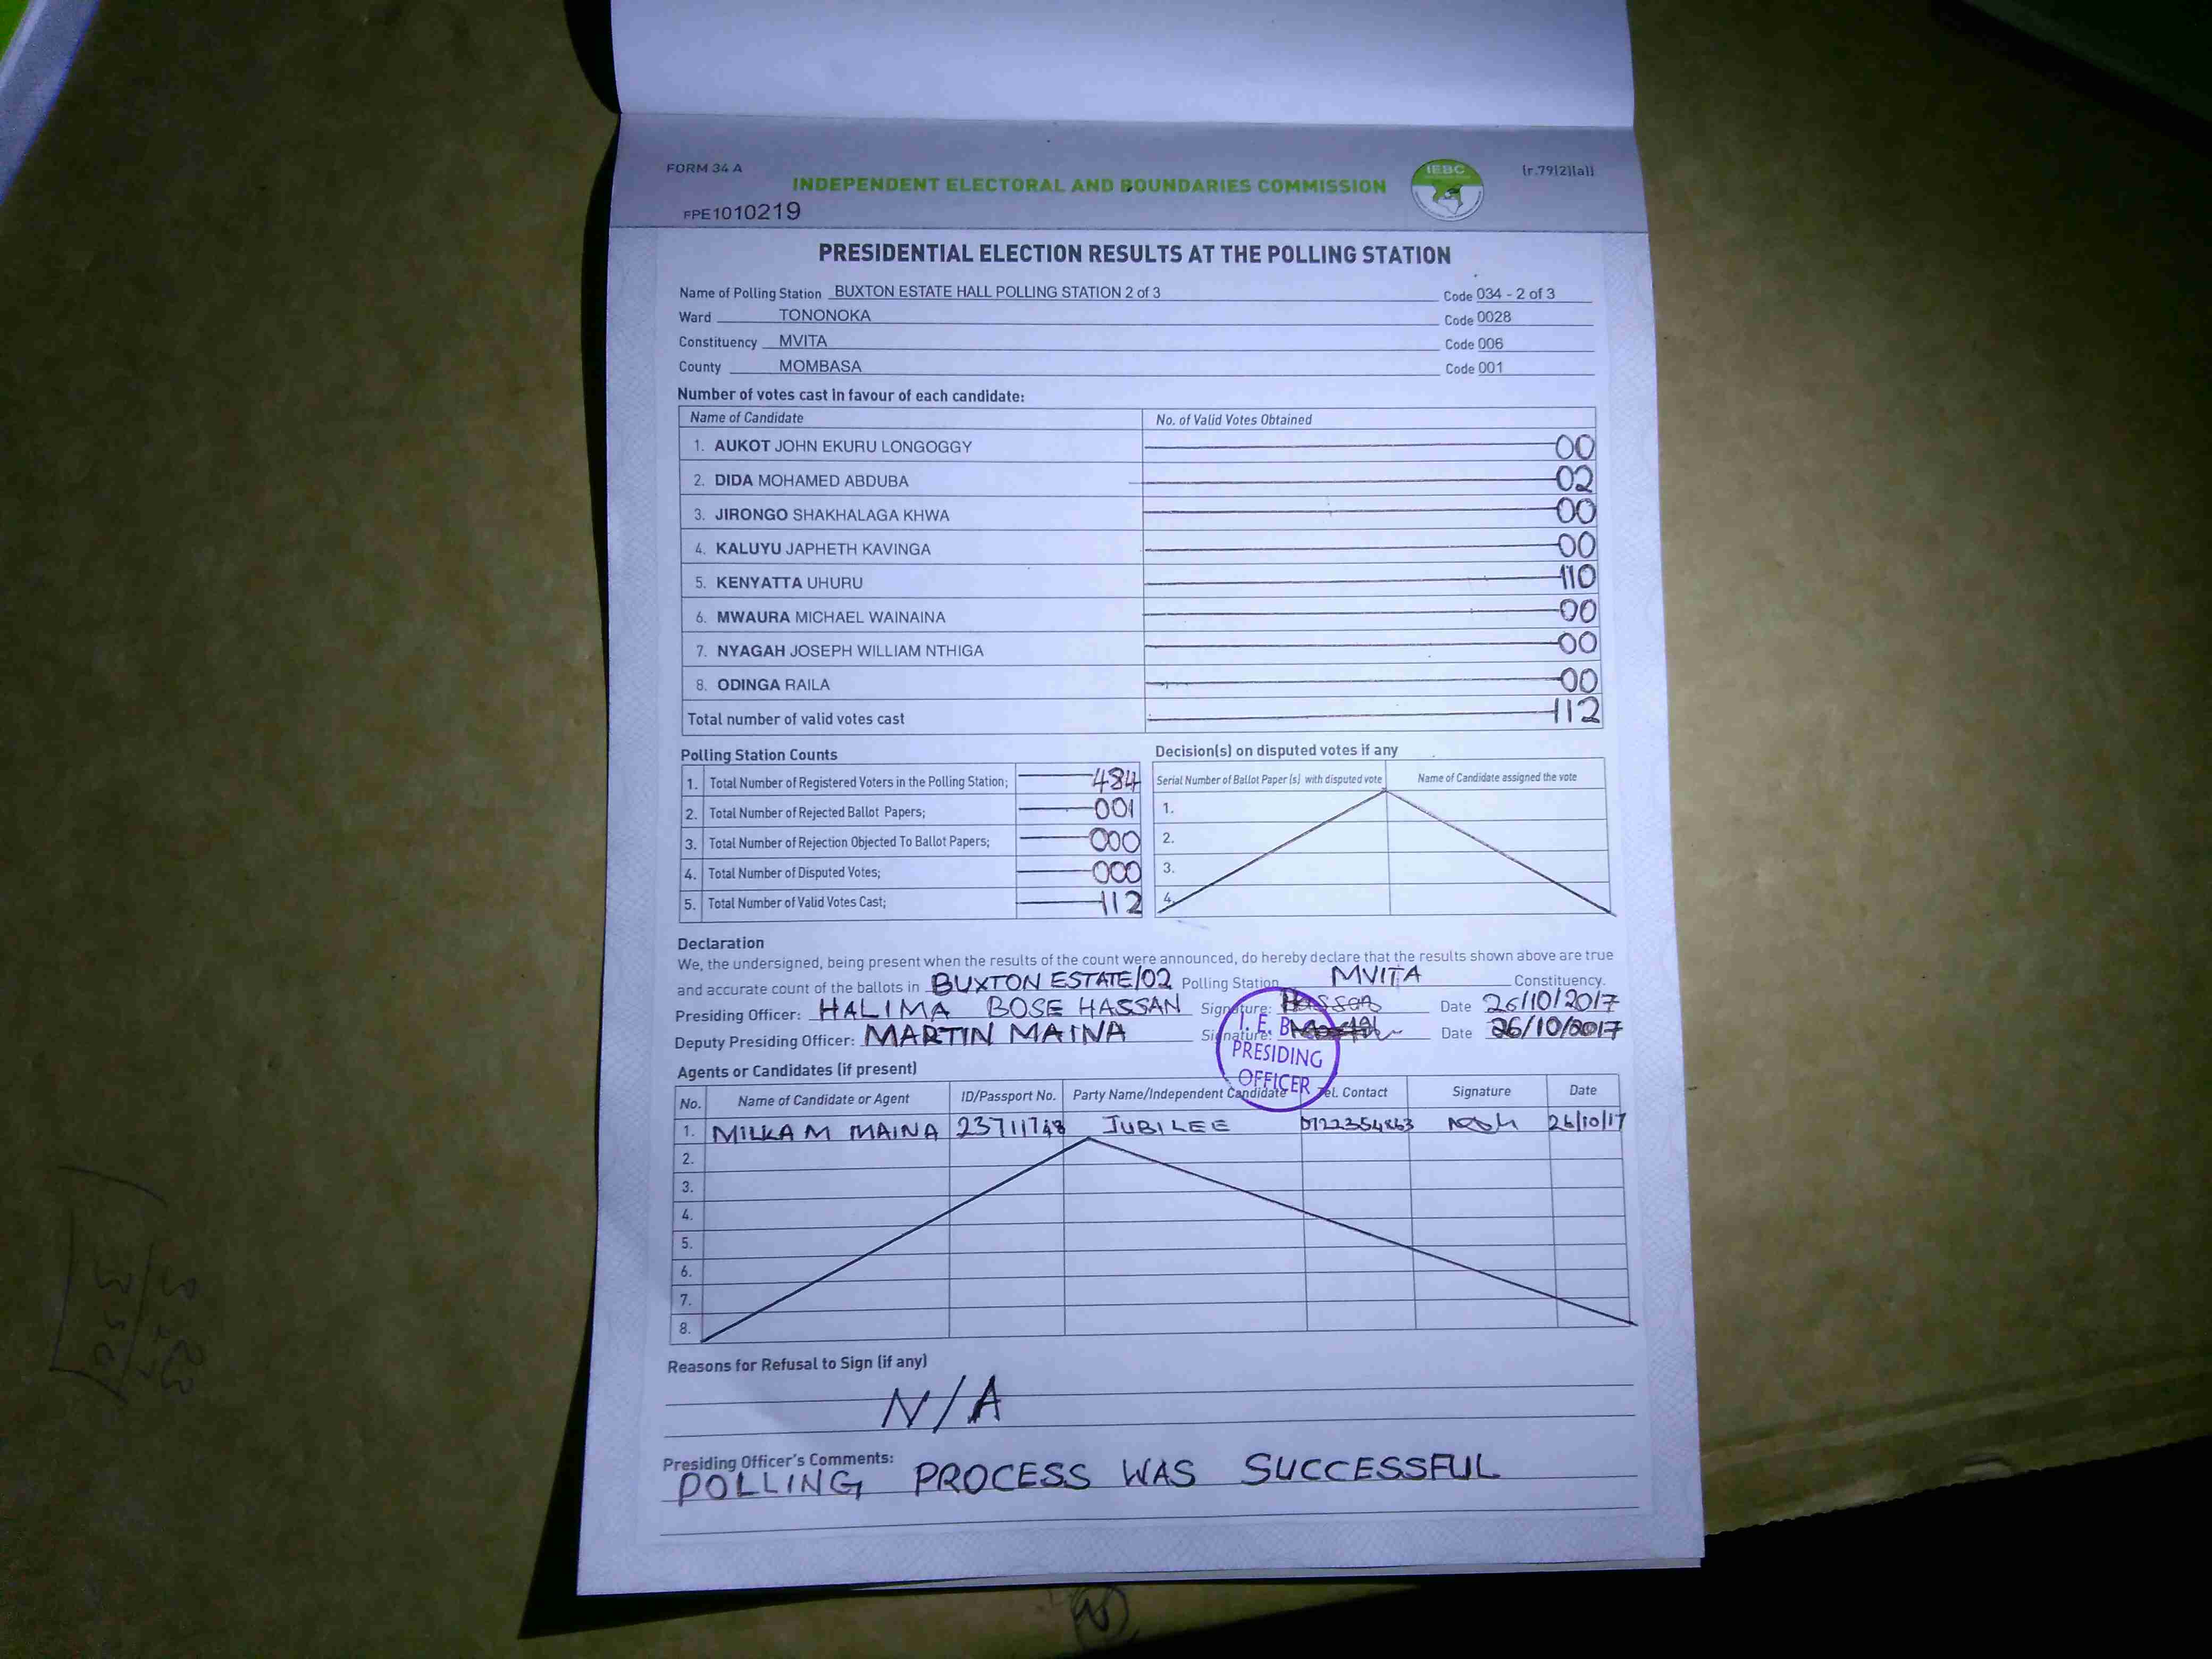 FORM 34 A
INDEPENDENT ELECTORAL AND BOUNDARIES COMMISSION
IEBC
(r.79(2)(a))
FPE1010219
PRESIDENTIAL ELECTION RESULTS AT THE POLLING STATION
Name of Polling Station BUXTON ESTATE HALL POLLING STATION 2 of 3 Code 034 - 2 of 3
Ward TONONOKA Code 0028
Constituency MVITA Code 006
County MOMBASA Code 001
Number of votes cast in favour of each candidate:
Name of Candidate No. of Valid Votes Obtained
1. AUKOT JOHN EKURU LONGOGGY 00
2. DIDA MOHAMED ABDUBA 02
3. JIRONGO SHAKHALAGA KHWA 00
4. KALUYU JAPHETH KAVINGA 00
5. KENYATTA UHURU 110
6. MWAURA MICHAEL WAINAINA 00
7. NYAGAH JOSEPH WILLIAM NTHIGA 00
8. ODINGA RAILA 00
Total number of valid votes cast 112
Polling Station Counts
1. Total Number of Registered Voters in the Polling Station; 484
2. Total Number of Rejected Ballot Papers; 001
3. Total Number of Rejection Objected To Ballot Papers; 000
4. Total Number of Disputed Votes; 000
5. Total Number of Valid Votes Cast; 112
Decision(s) on disputed votes if any
Serial Number of Ballot Paper (s) with disputed vote Name of Candidate assigned the vote
1.
2.
3.
4.
Declaration
We, the undersigned, being present when the results of the count were announced, do hereby declare that the results shown above are true
and accurate count of the ballots in BUXTON ESTATE/02 Polling Station MVITA Constituency.
Presiding Officer: HALIMA BOSE HASSAN Signature: Hassan Date 26/10/2017
Deputy Presiding Officer: MARTIN MAINA Signature: Date 26/10/2017
I. E. B
PRESIDING
OFFICER
Agents or Candidates (if present)
No. Name of Candidate or Agent ID/Passport No. Party Name/Independent Candidate Tel. Contact Signature Date
1. MILKA M MAINA 23711748 JUBILEE 0722354863 26/10/17
2.
3.
4.
5.
6.
7.
8.
Reasons for Refusal to Sign (if any)
N/A
Presiding Officer's Comments:
POLLING PROCESS WAS SUCCESSFUL